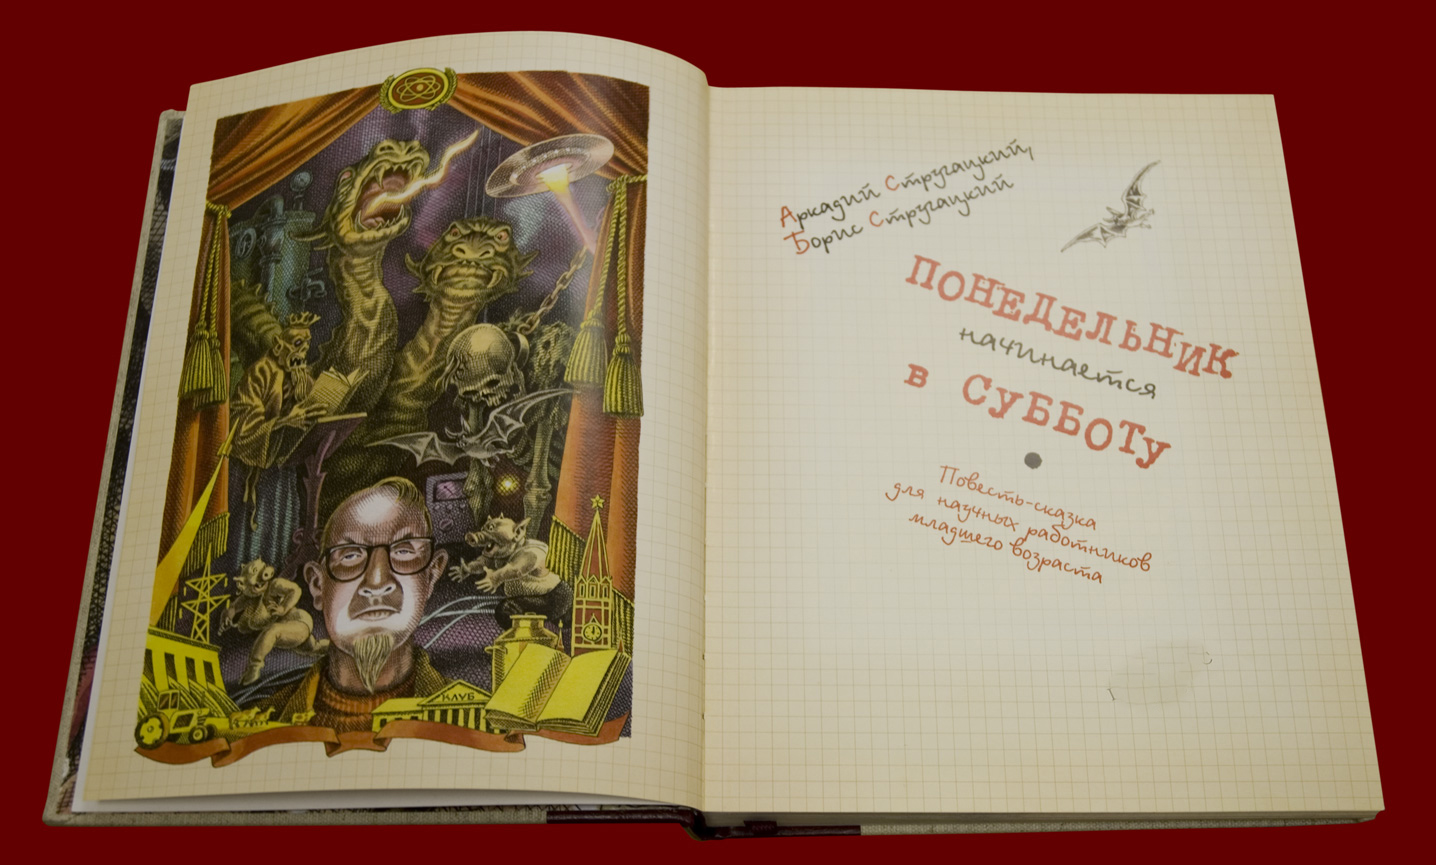 Аркадий Стругацкий,
Борис Стругацкий
ПОНЕДЕЛЬНИК
начинается
в СУББОТУ
Повесть-сказка
для научных работников
младшего возраста
КЛУБ